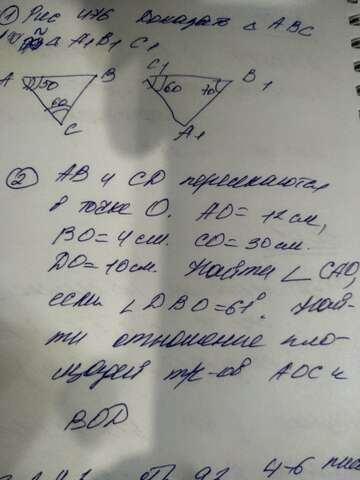 ① Рис 476 Доказать Δ ABC
Δ A1B1 C1
A 50 B
60
C
C1 60 70 B1
A1
② AB и CD пересекаются
в точке O. AO = 12 см,
BO = 4 см. CO = 30 см.
DO = 10 см. Найти ∠ CAO,
если ∠ DBO = 61°. Най-
ти отношение пло-
щадей тр-ов AOC и
BOD
4-6